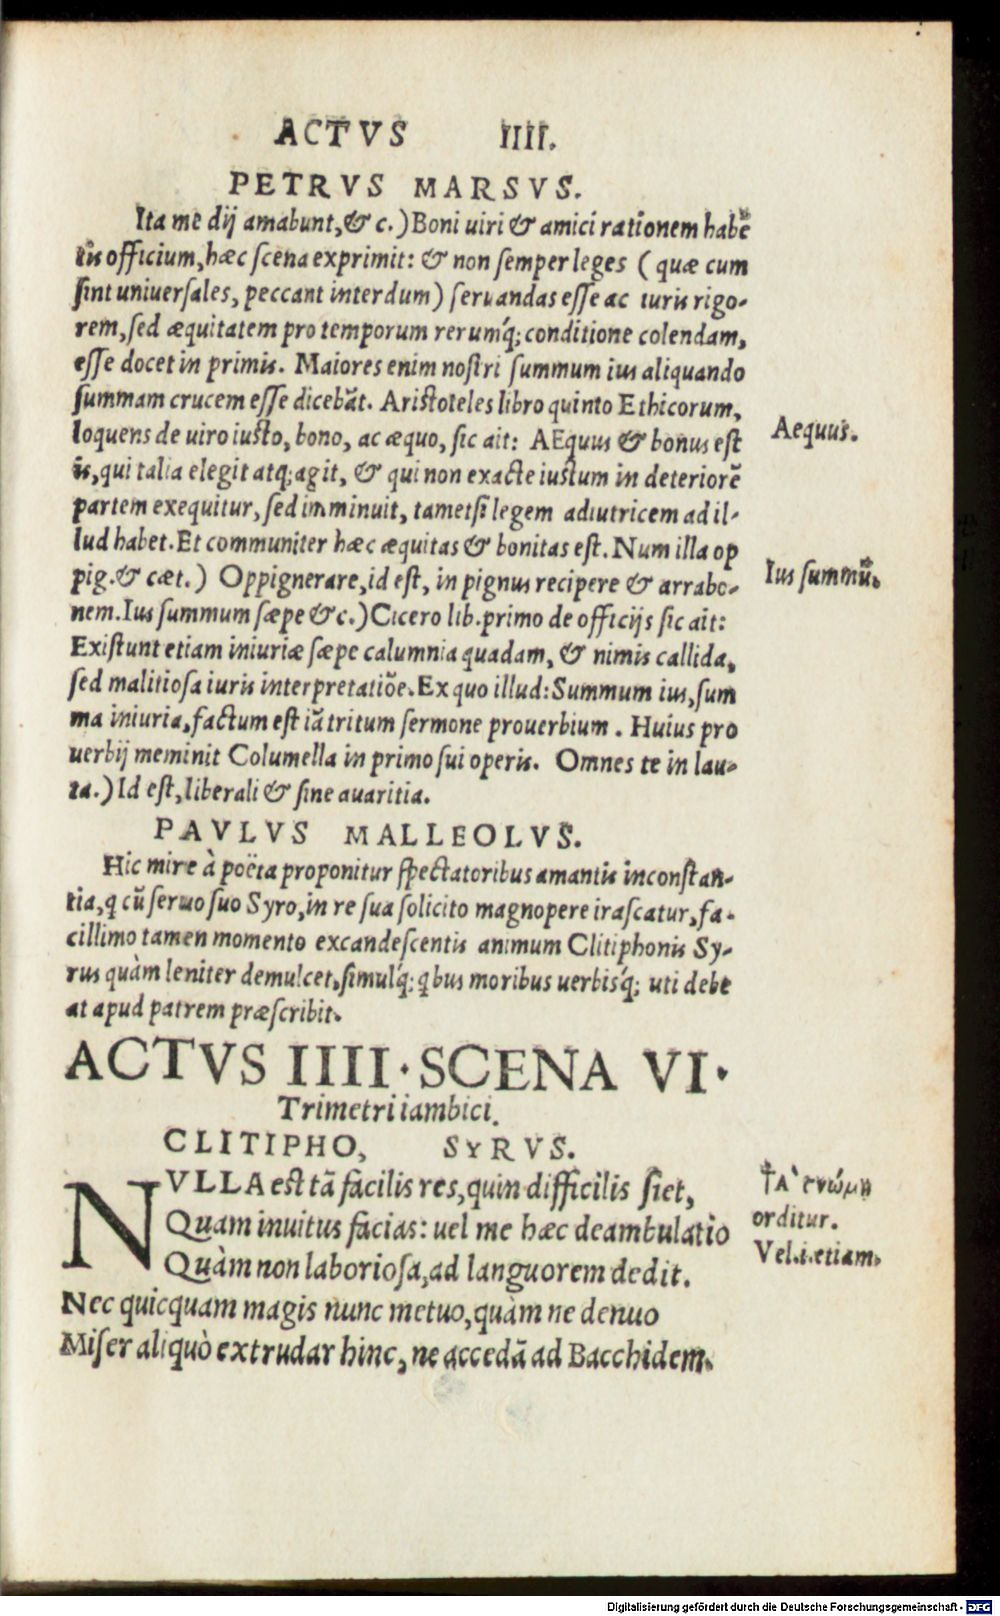 ACTVS IIII.
PETRVS MARSVS.
Ita me dij amabunt, & c.) Boni uiri & amici rationem habē
tis officium, hæc scena exprimit: & non semper leges (quæ cum
sint uniuersales, peccant interdum) seruandas esse ac iuris rigo-
rem, sed æquitatem pro temporum rerumq́; conditione colendam,
esse docet in primis. Maiores enim nostri summum ius aliquando
summam crucem esse dicebāt. Aristoteles libro quinto Ethicorum,
loquens de uiro iusto, bono, ac æquo, sic ait: AEquus & bonus est
Aequus.
is, qui talia elegit atq; agit, & qui non exacte iustum in deteriorē
partem exequitur, sed imminuit, tametsi legem adiutricem ad il-
lud habet. Et communiter hæc æquitas & bonitas est. Num illa op
pig. & cæt.) Oppignerare, id est, in pignus recipere & arrabo-
Ius summū.
nem. Ius summum sæpe & c.) Cicero lib. primo de officijs sic ait:
Existunt etiam iniuriæ sæpe calumnia quadam, & nimis callida,
sed malitiosa iuris interpretatiōe. Ex quo illud: Summum ius, sum
ma iniuria, factum est iā tritum sermone prouerbium. Huius pro
uerbij meminit Columella in primo sui operis. Omnes te in lau-
ta.) Id est, liberali & sine auaritia.
PAVLVS MALLEOLVS.
Hic mire à poëta proponitur spectatoribus amantis inconstan-
tia, q cū seruo suo Syro, in re sua solicito magnopere irascatur, fa-
cillimo tamen momento excandescentis animum Clitiphonis Sy-
rus quàm leniter demulcet, simulq́; qbus moribus uerbisq́; uti debe
at apud patrem præscribit.
ACTVS IIII. SCENA VI.
Trimetri iambici.
CLITIPHO, SYRVS.
NVLLA est tā facilis res, quin difficilis siet,
Quam inuitus facias: uel me hæc deambulatio
Quàm non laboriosa, ad languorem dedit.
†Α` γνώμη
orditur.
Vel .i. etiam.
Nec quicquam magis nunc metuo, quàm ne denuo
Miser aliquò extrudar hinc, ne accedā ad Bacchidem.
Digitalisierung gefördert durch die Deutsche Forschungsgemeinschaft - DFG